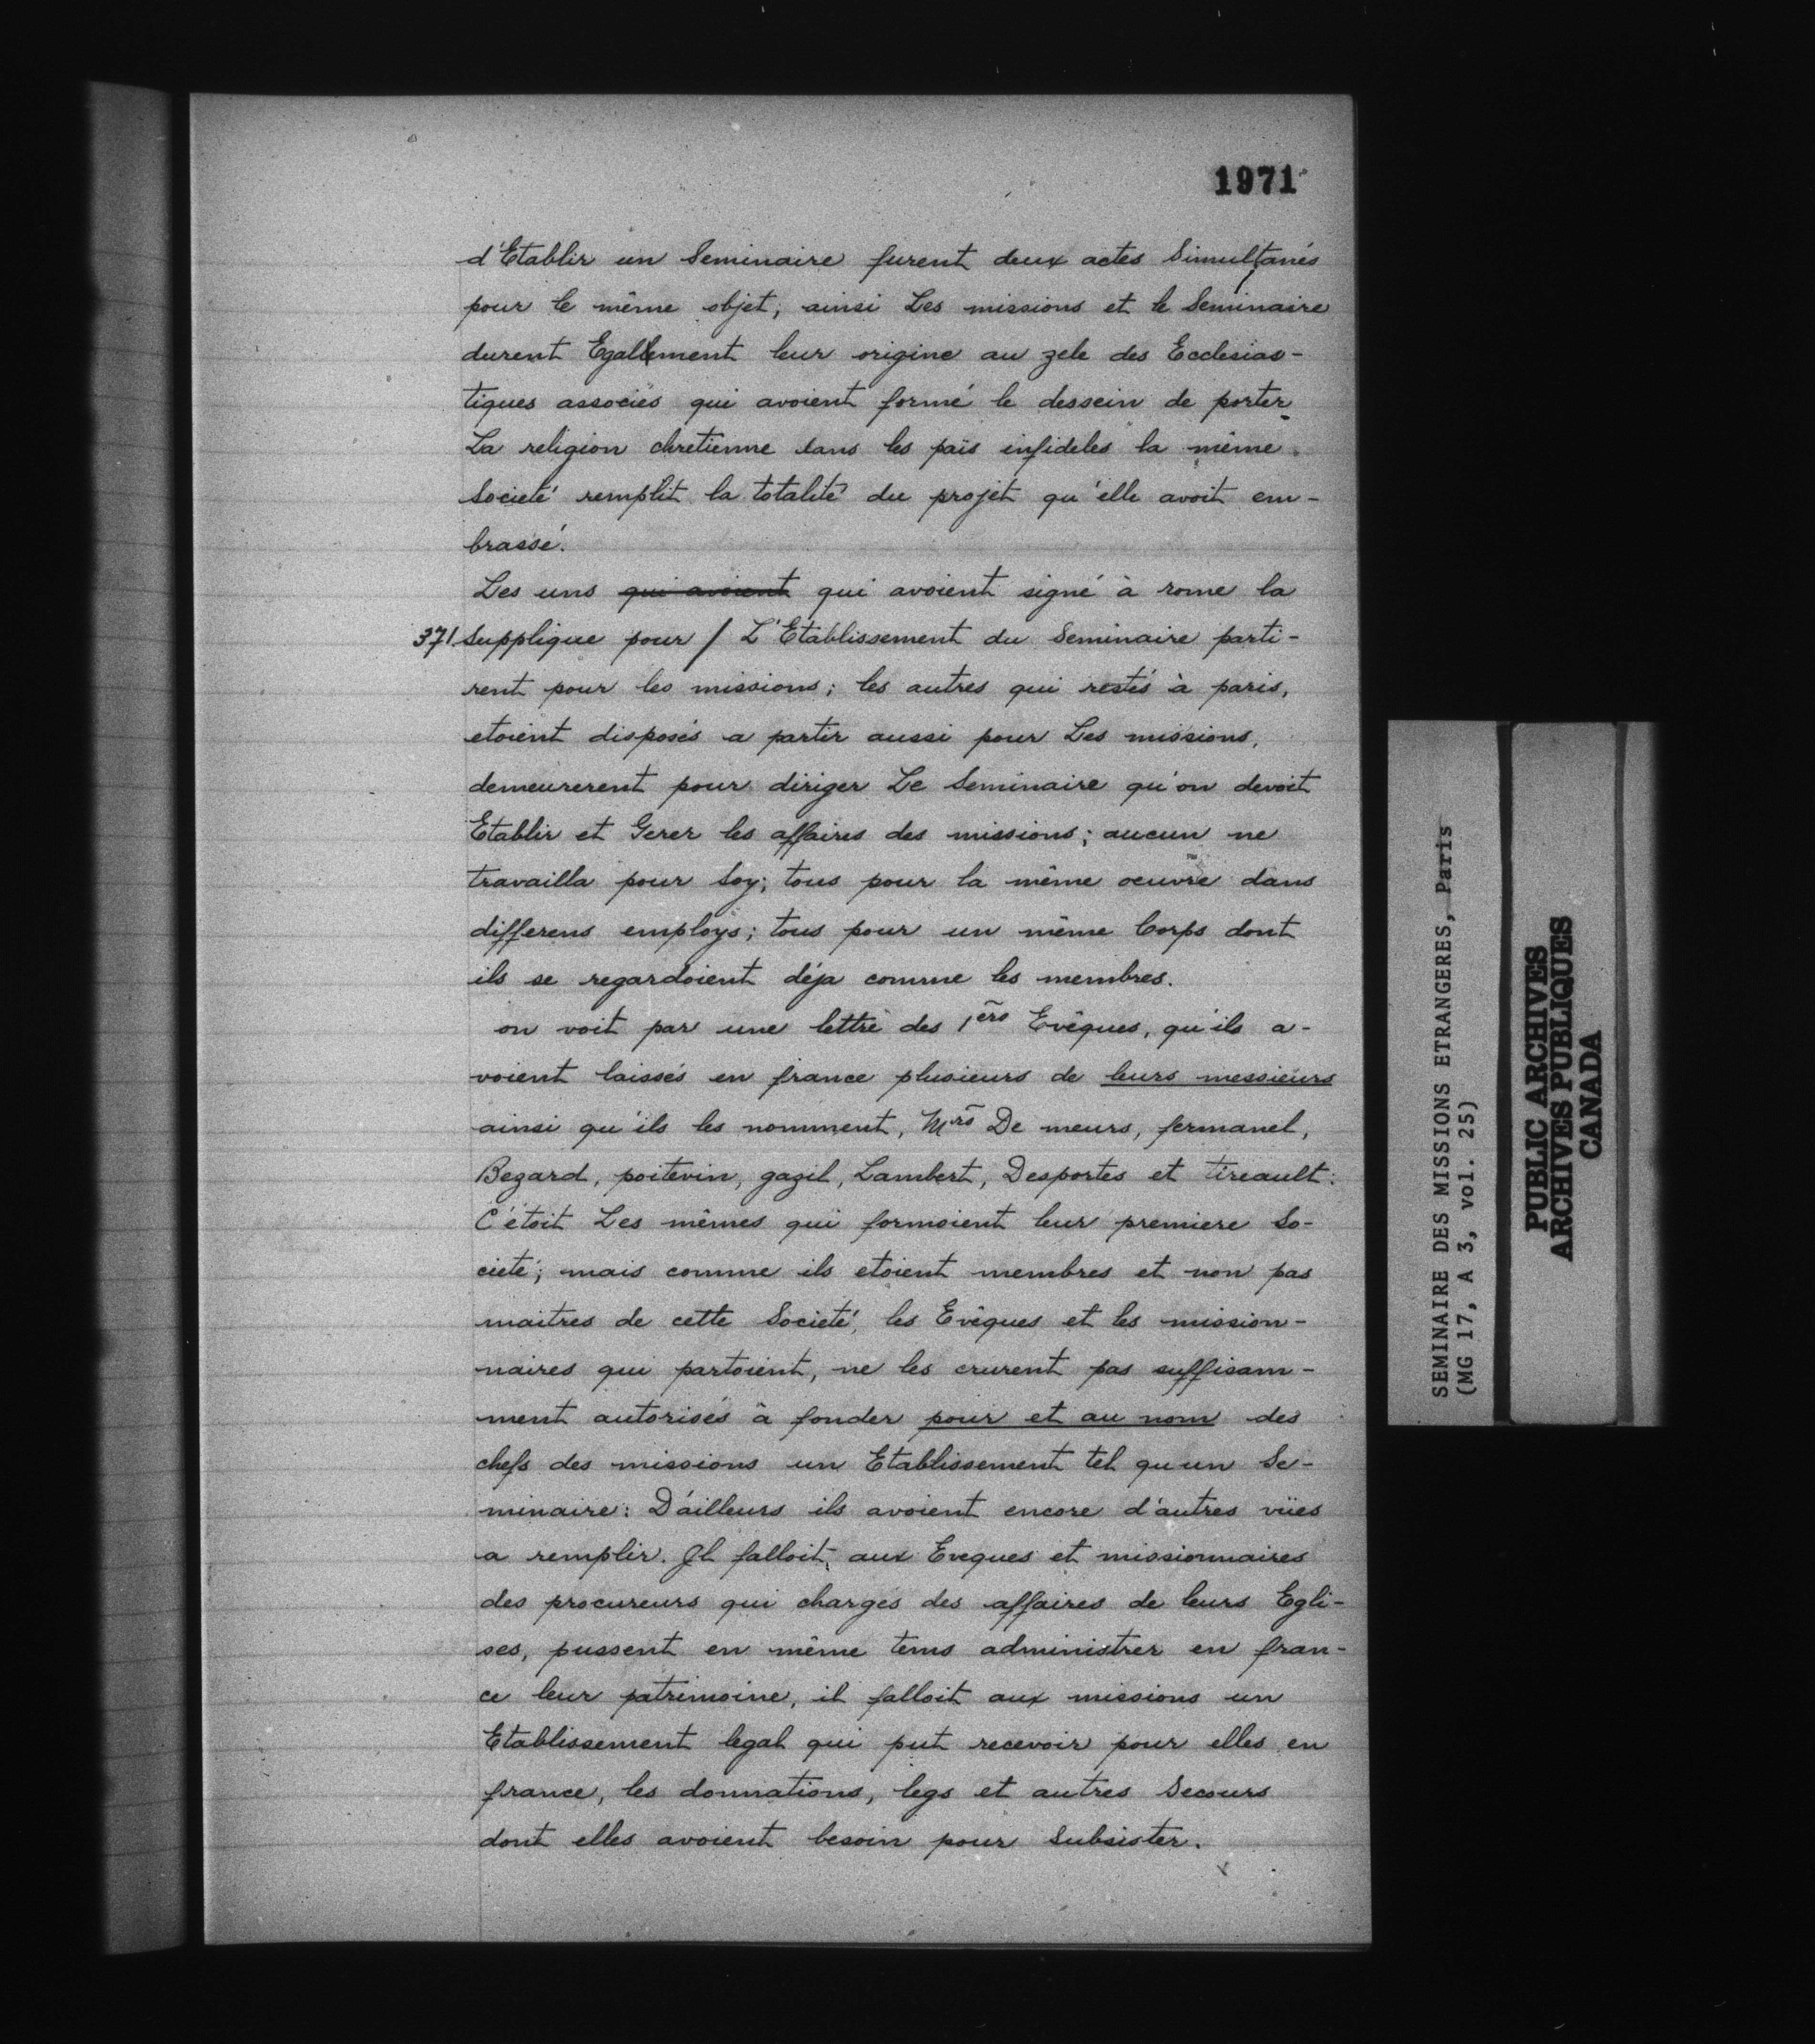 1971
d'Etablir un Seminaire furent deux actes Simultanés
pour le même objet, ainsi Les missions et le Seminaire
durent Egallement leur origine au zele des Ecclesias-
tiques associés qui avoient formé le dessein de porter
La religion chretienne dans les païs infideles la même
Societé remplit la totalité du projet qu'elle avoit em-
brassé.
Les uns qui avoient qui avoient signé à rome la
371 Supplique pour / L'Etablissement du Seminaire parti-
rent pour les missions; les autres qui restés à paris,
etoient disposés a partir aussi pour Les missions,
demeurerent pour diriger Le Seminaire qu'on devoit
Etablir et Gerer les affaires des missions; aucun ne
travailla pour Soy; tous pour la même oeuvre dans
differens employs; tous pour un même Corps dont
ils se regardoient déja comme les membres.
on voit par une lettre des 1ers Evêques, qu'ils a-
voient laissés en france plusieurs de leurs messieurs
ainsi qu'ils les nomment, Mrs De meurs, fermanel,
Bezard, poitevin, gazil, Lambert, Desportes et tireault:
C'étoit Les mêmes qui formoient leur premiere So-
cieté; mais comme ils etoient membres et non pas
maitres de cette Societé, les Evêques et les mission-
naires qui partoient, ne les crurent pas suffisam-
ment autorisés à fonder pour et au nom des
chefs des missions un Etablissement tel qu'un Se-
minaire: D'ailleurs ils avoient encore d'autres vües
a remplir. Il falloit aux Eveques et missionnaires
des procureurs qui chargés des affaires de leurs Egli-
ses, pussent en même tems administrer en fran-
ce leur patrimoine, il falloit aux missions un
Etablissement legal qui put recevoir pour elles en
france, les donnations, legs et autres Secours
dont elles avoient besoin pour Subsister.
SEMINAIRE DES MISSIONS ETRANGERES, Paris
(MG 17, A 3, vol. 25)
PUBLIC ARCHIVES
ARCHIVES PUBLIQUES
CANADA